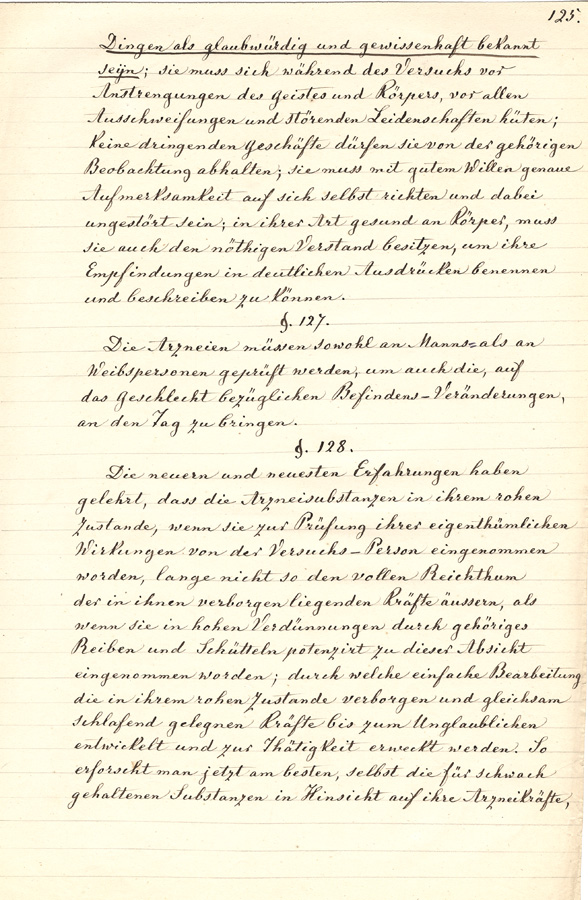 125.
Dingen als glaubwürdig und gewissenhaft bekannt
seÿn; sie muss sich während des Versuchs vor
Anstrengungen des Geistes und Körpers, vor allen
Ausschweifungen und störenden Leidenschaften hüten;
keine dringenden Geschäfte dürfen sie von der gehörigen
Beobachtung abhalten; sie muss mit gutem Willen genaue
Aufmerksamkeit auf sich selbst richten und dabei
ungestört sein; in ihrer Art gesund an Körper, muss
sie auch den nöthigen Verstand besitzen, um ihre
Empfindungen in deutlichen Ausdrücken benennen
und beschreiben zu können.
§. 127.
Die Arzneien müssen sowohl an Manns= als an
Weibspersonen geprüft werden, um auch die, auf
das Geschlecht bezüglichen Befindens-Veränderungen,
an den Tag zu bringen.
§. 128.
Die neuern und neuesten Erfahrungen haben
gelehrt, dass die Arzneisubstanzen in ihrem rohen
Zustande, wenn sie zur Prüfung ihrer eigenthümlichen
Wirkungen von der Versuchs-Person eingenommen
worden, lange nicht so den vollen Reichthum
der in ihnen verborgen liegenden Kräfte äussern, als
wenn sie in hohen Verdünnungen durch gehöriges
Reiben und Schütteln potenzirt zu dieser Absicht
eingenommen worden; durch welche einfache Bearbeitung
die in ihrem rohen Zustande verborgen und gleichsam
schlafend gelegnen Kräfte bis zum Unglaublichen
entwickelt und zur Thätigkeit erweckt werden. So
erforscht man jetzt am besten, selbst die für schwach
gehaltenen Substanzen in Hinsicht auf ihre Arzneikräfte,